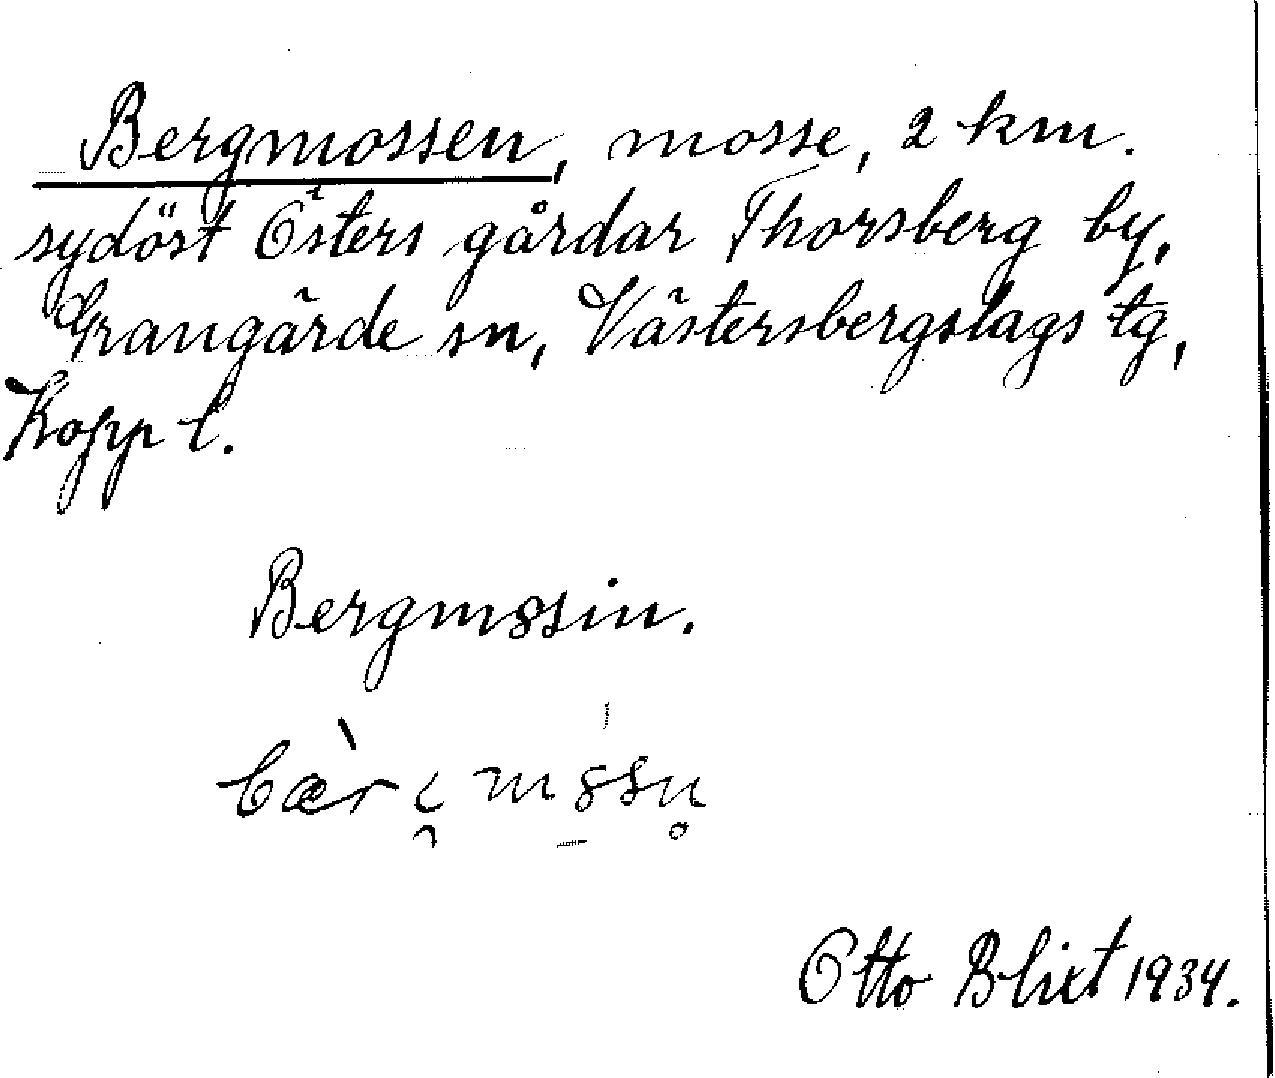 Bergmossen, mosse, 2 km.
sydöst Östers gårdar Thorsberg by,
Grangärde sn, Västersbergslags tg,
Kopp l.
Bergmssin.
Otto Blixt 1934.